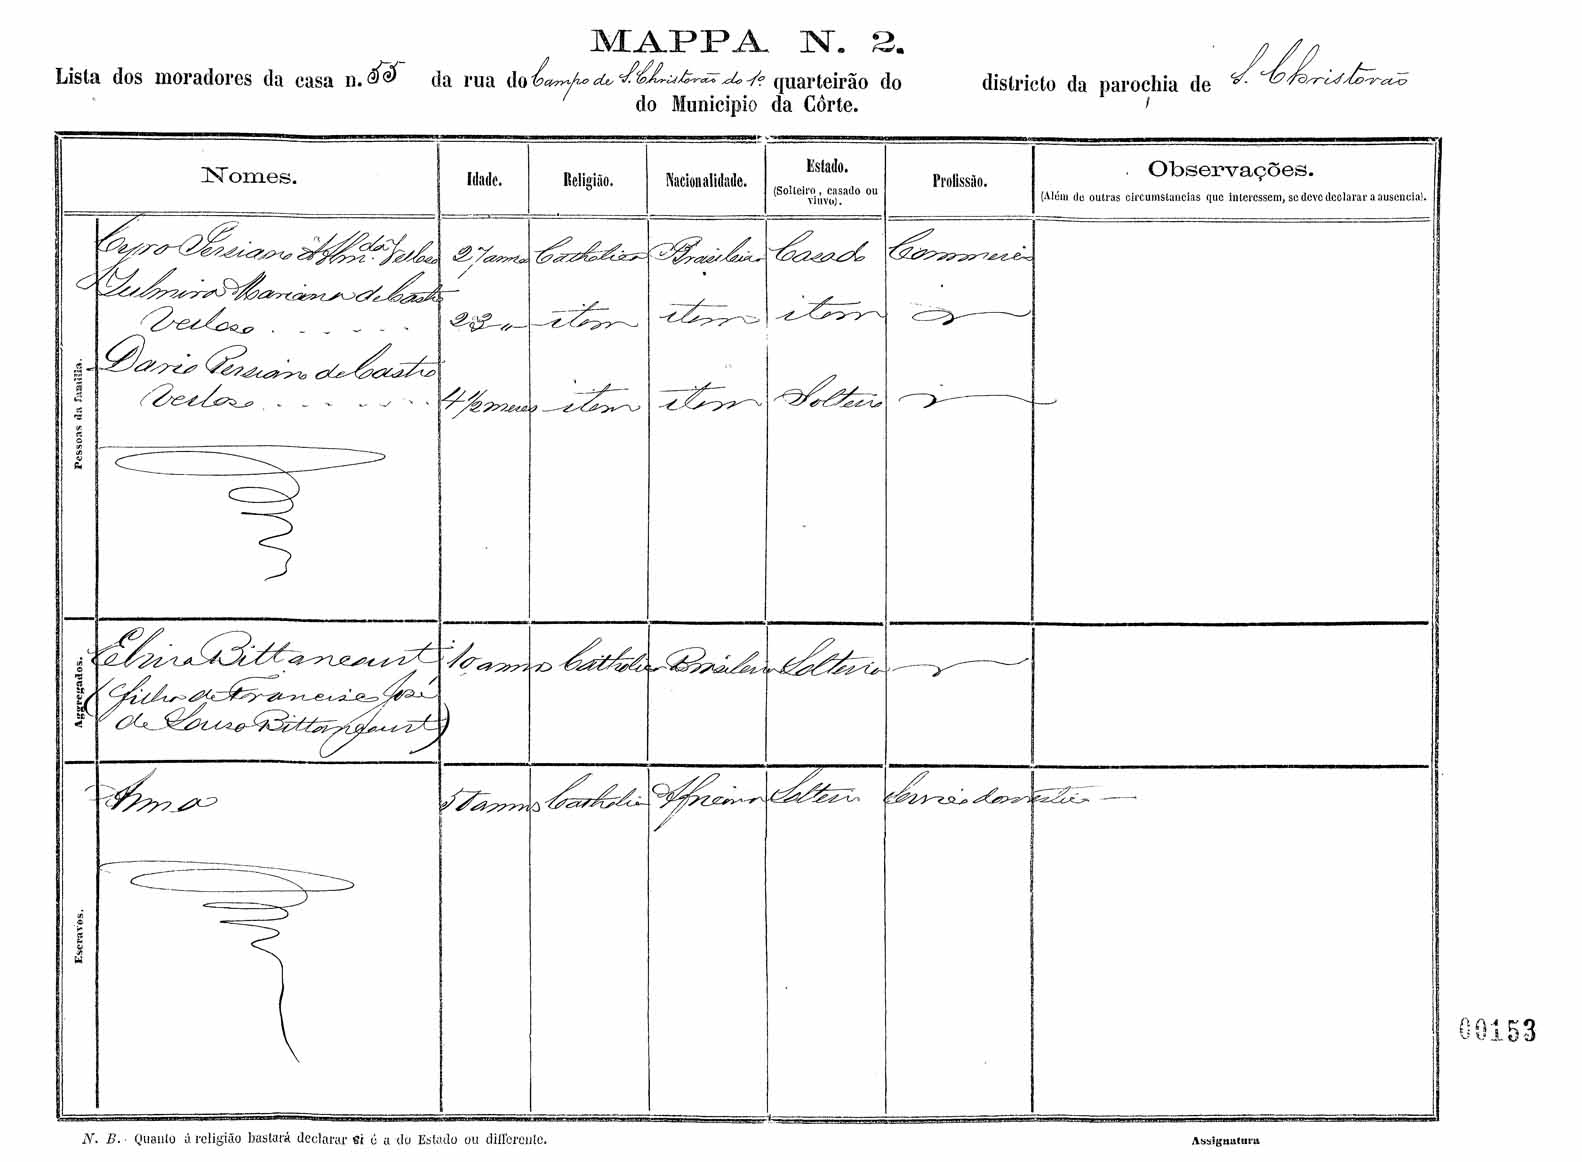 MAPPA N. 2.
Lista dos moradores da casa n. 55 da rua do Campo de S. Christovão do 1º quarteirão do districto da parochia de S. Christovão
do Municipio da Côrte.
Nomes. Idade. Religião. Nacionalidade. Estado. (Solteiro, casado ou viuvo). Profissão. Observações.
(Além de outras circumstancias que interessem, se deve declarar a ausencia).
Pessoas da familia.
Cyro Persiano da Velloso 27 annos Catholico Brasileiro Casado Commercio
Mariana de Castro
Velloso 23 " item item item
Dario Persiano de Castro
Velloso 4 1/2 mezes item item Solteiro
Aggregados.
Elvira Bittancourt 10 annos Catholica Brasileira Solteira
(filha de Francisco José
de Souza Bittancourt)
Escravos.
annos Catholica Africana Solteira Serviço domestico
00153
N. B. Quanto á religião bastará declarar si é a do Estado ou differente.
Assignatura